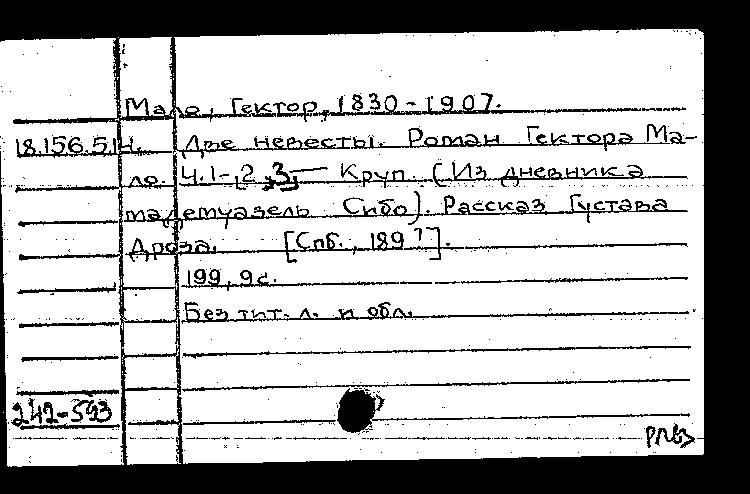 Мало, Гектор, 1830-1907.
18.156.5.14. Две невесты. Роман Гектора Ма-
ло. Ч.1-2, 3, — Круп. (Из дневника
мадемуазель Сибо). Рассказ Густава
Дроза. [Спб., 189?].
199, 9 с.
Без тит. л. и обл.
242-593